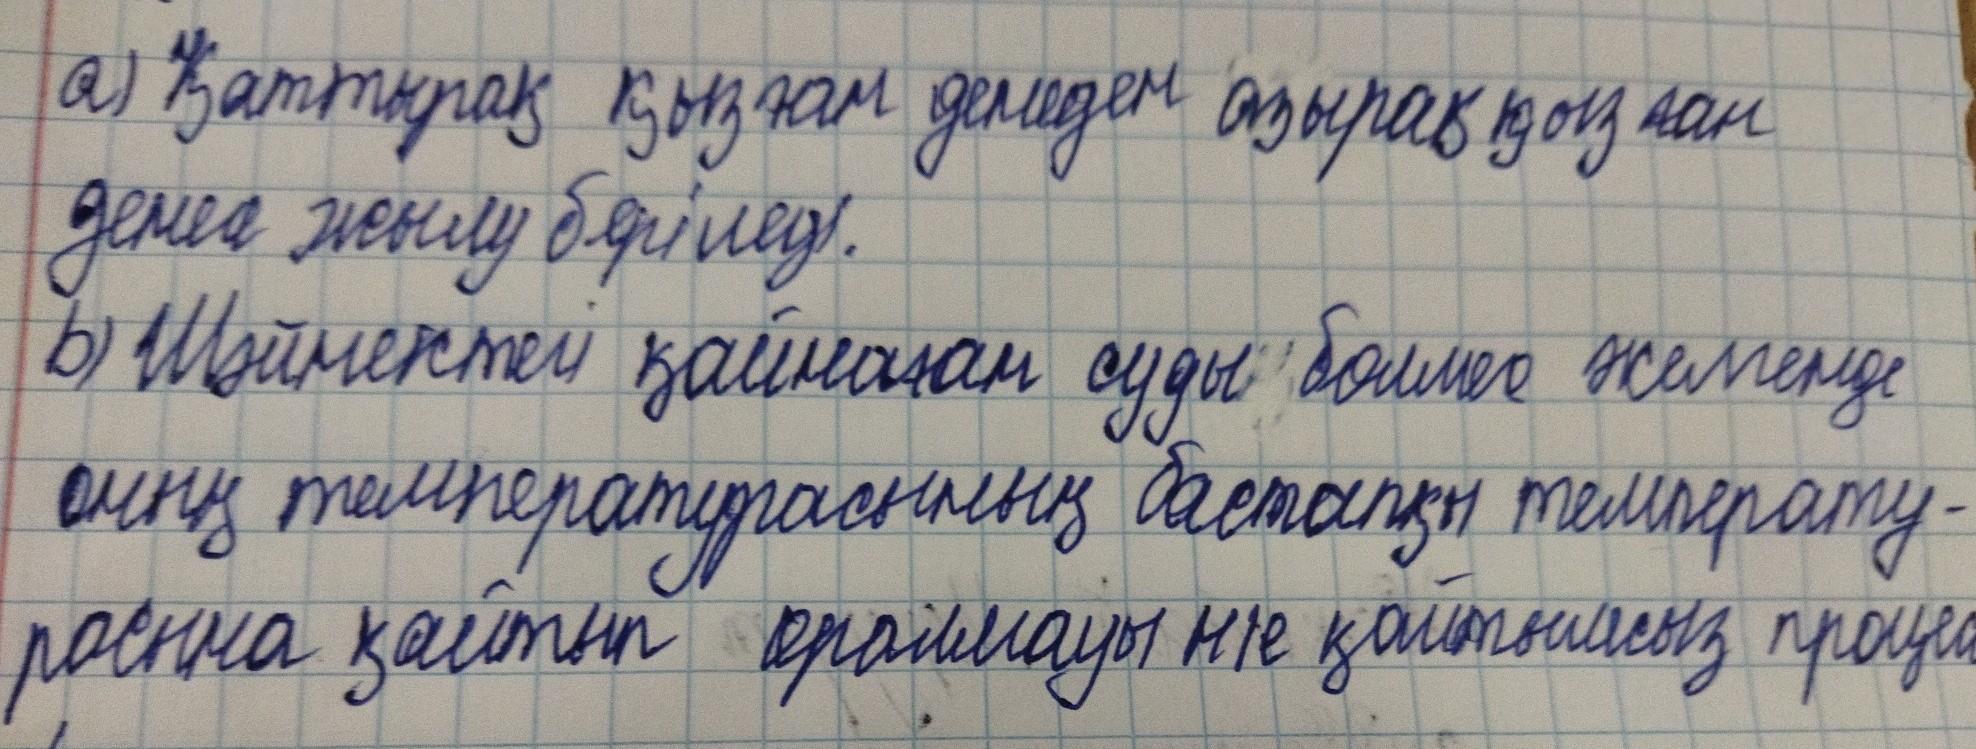 a) Қаттырақ қызған денеден азырақ қызған
денеге жылу беріледі.
b) Шәйнектегі қайнаған суды бөлмеге әкелгенде
оның температурасының бастапқы температу-
расына қайтып оралмауы не қайтымсыз процес